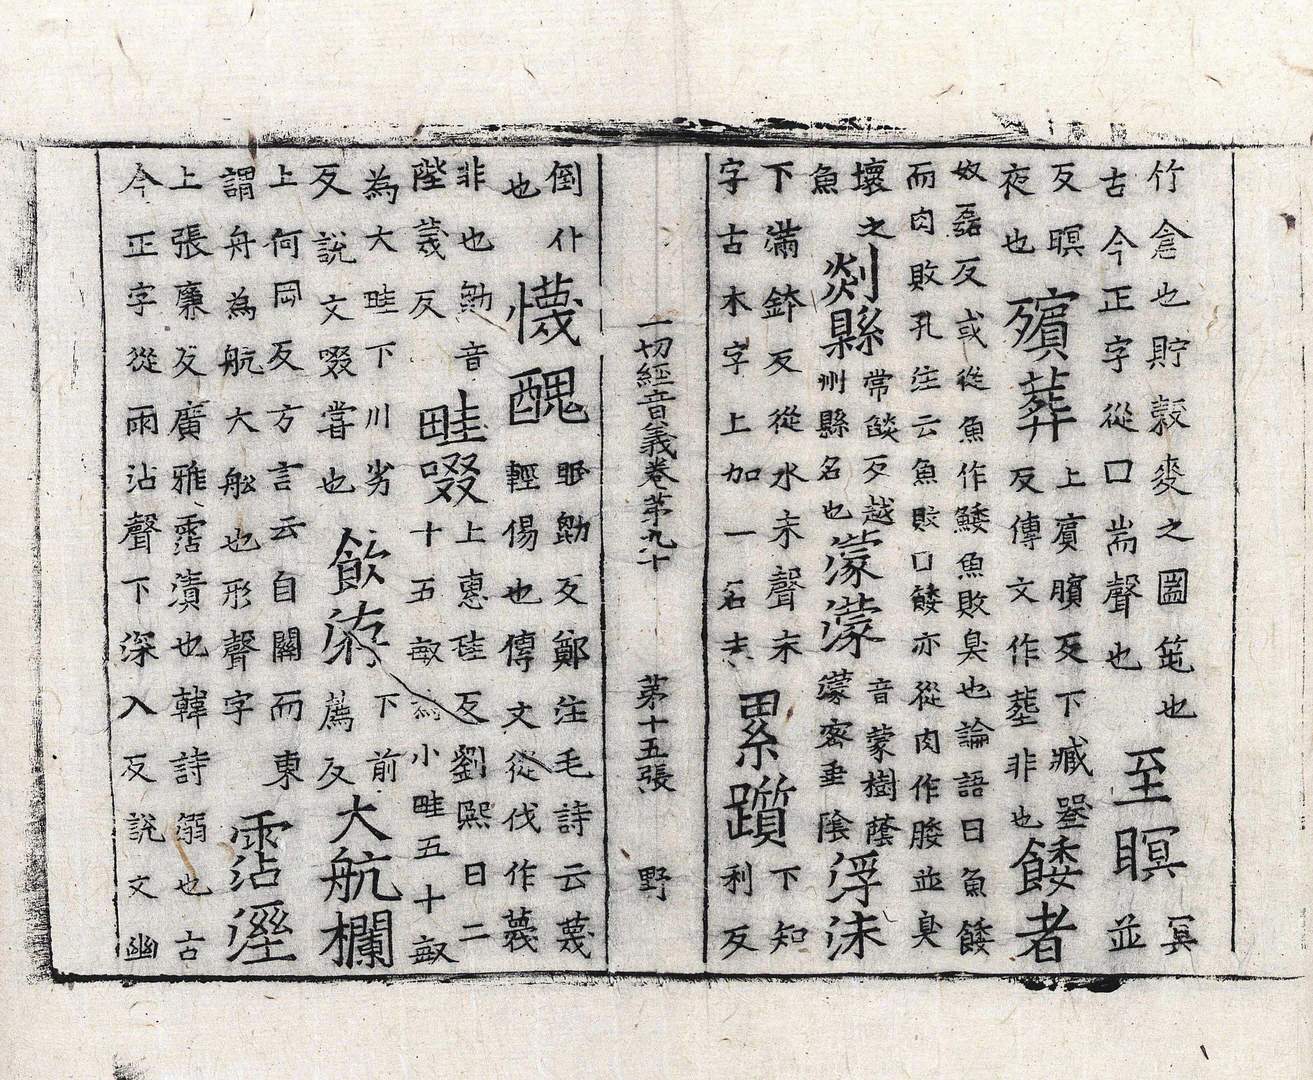 竹倉也貯穀麥之圌笹也
古今正字從口耑聲也
至瞑
冥
並
反瞑
夜也
殯葬
上賓臏反下臧
反傳文作塟非也
餧者
奴磊反或從魚作鯘魚敗臭也論語曰魚餧
而肉敗孔注云魚敗口餧亦從肉作腇並臭
壞之
魚
剡縣
常燄反越
州縣名也
濛濛
音蒙樹蔭
濛密垂陰
浮沫
下滿鉢反從水末聲末
字古木字上加一名末
累躓
下知
利反
一切經音義卷第九十
第十五張
野
倒仆
也
懱醜
眠鼈反鄭注毛詩云蔑
輕傷也傳文從伐作蔑
非也鼈音
陛蔑反
畦畷
上惠珪反劉熙曰二
十五畝為小畦五十畝
為大畦下川劣
反說文畷嘗也
飲洊
下前
薦反
大航欄
上何岡反方言云自關而東
謂舟為航大舩也形聲字
霑溼
上張廉反廣雅霑漬也韓詩溺也古
今正字從雨沾聲下深入反說文幽